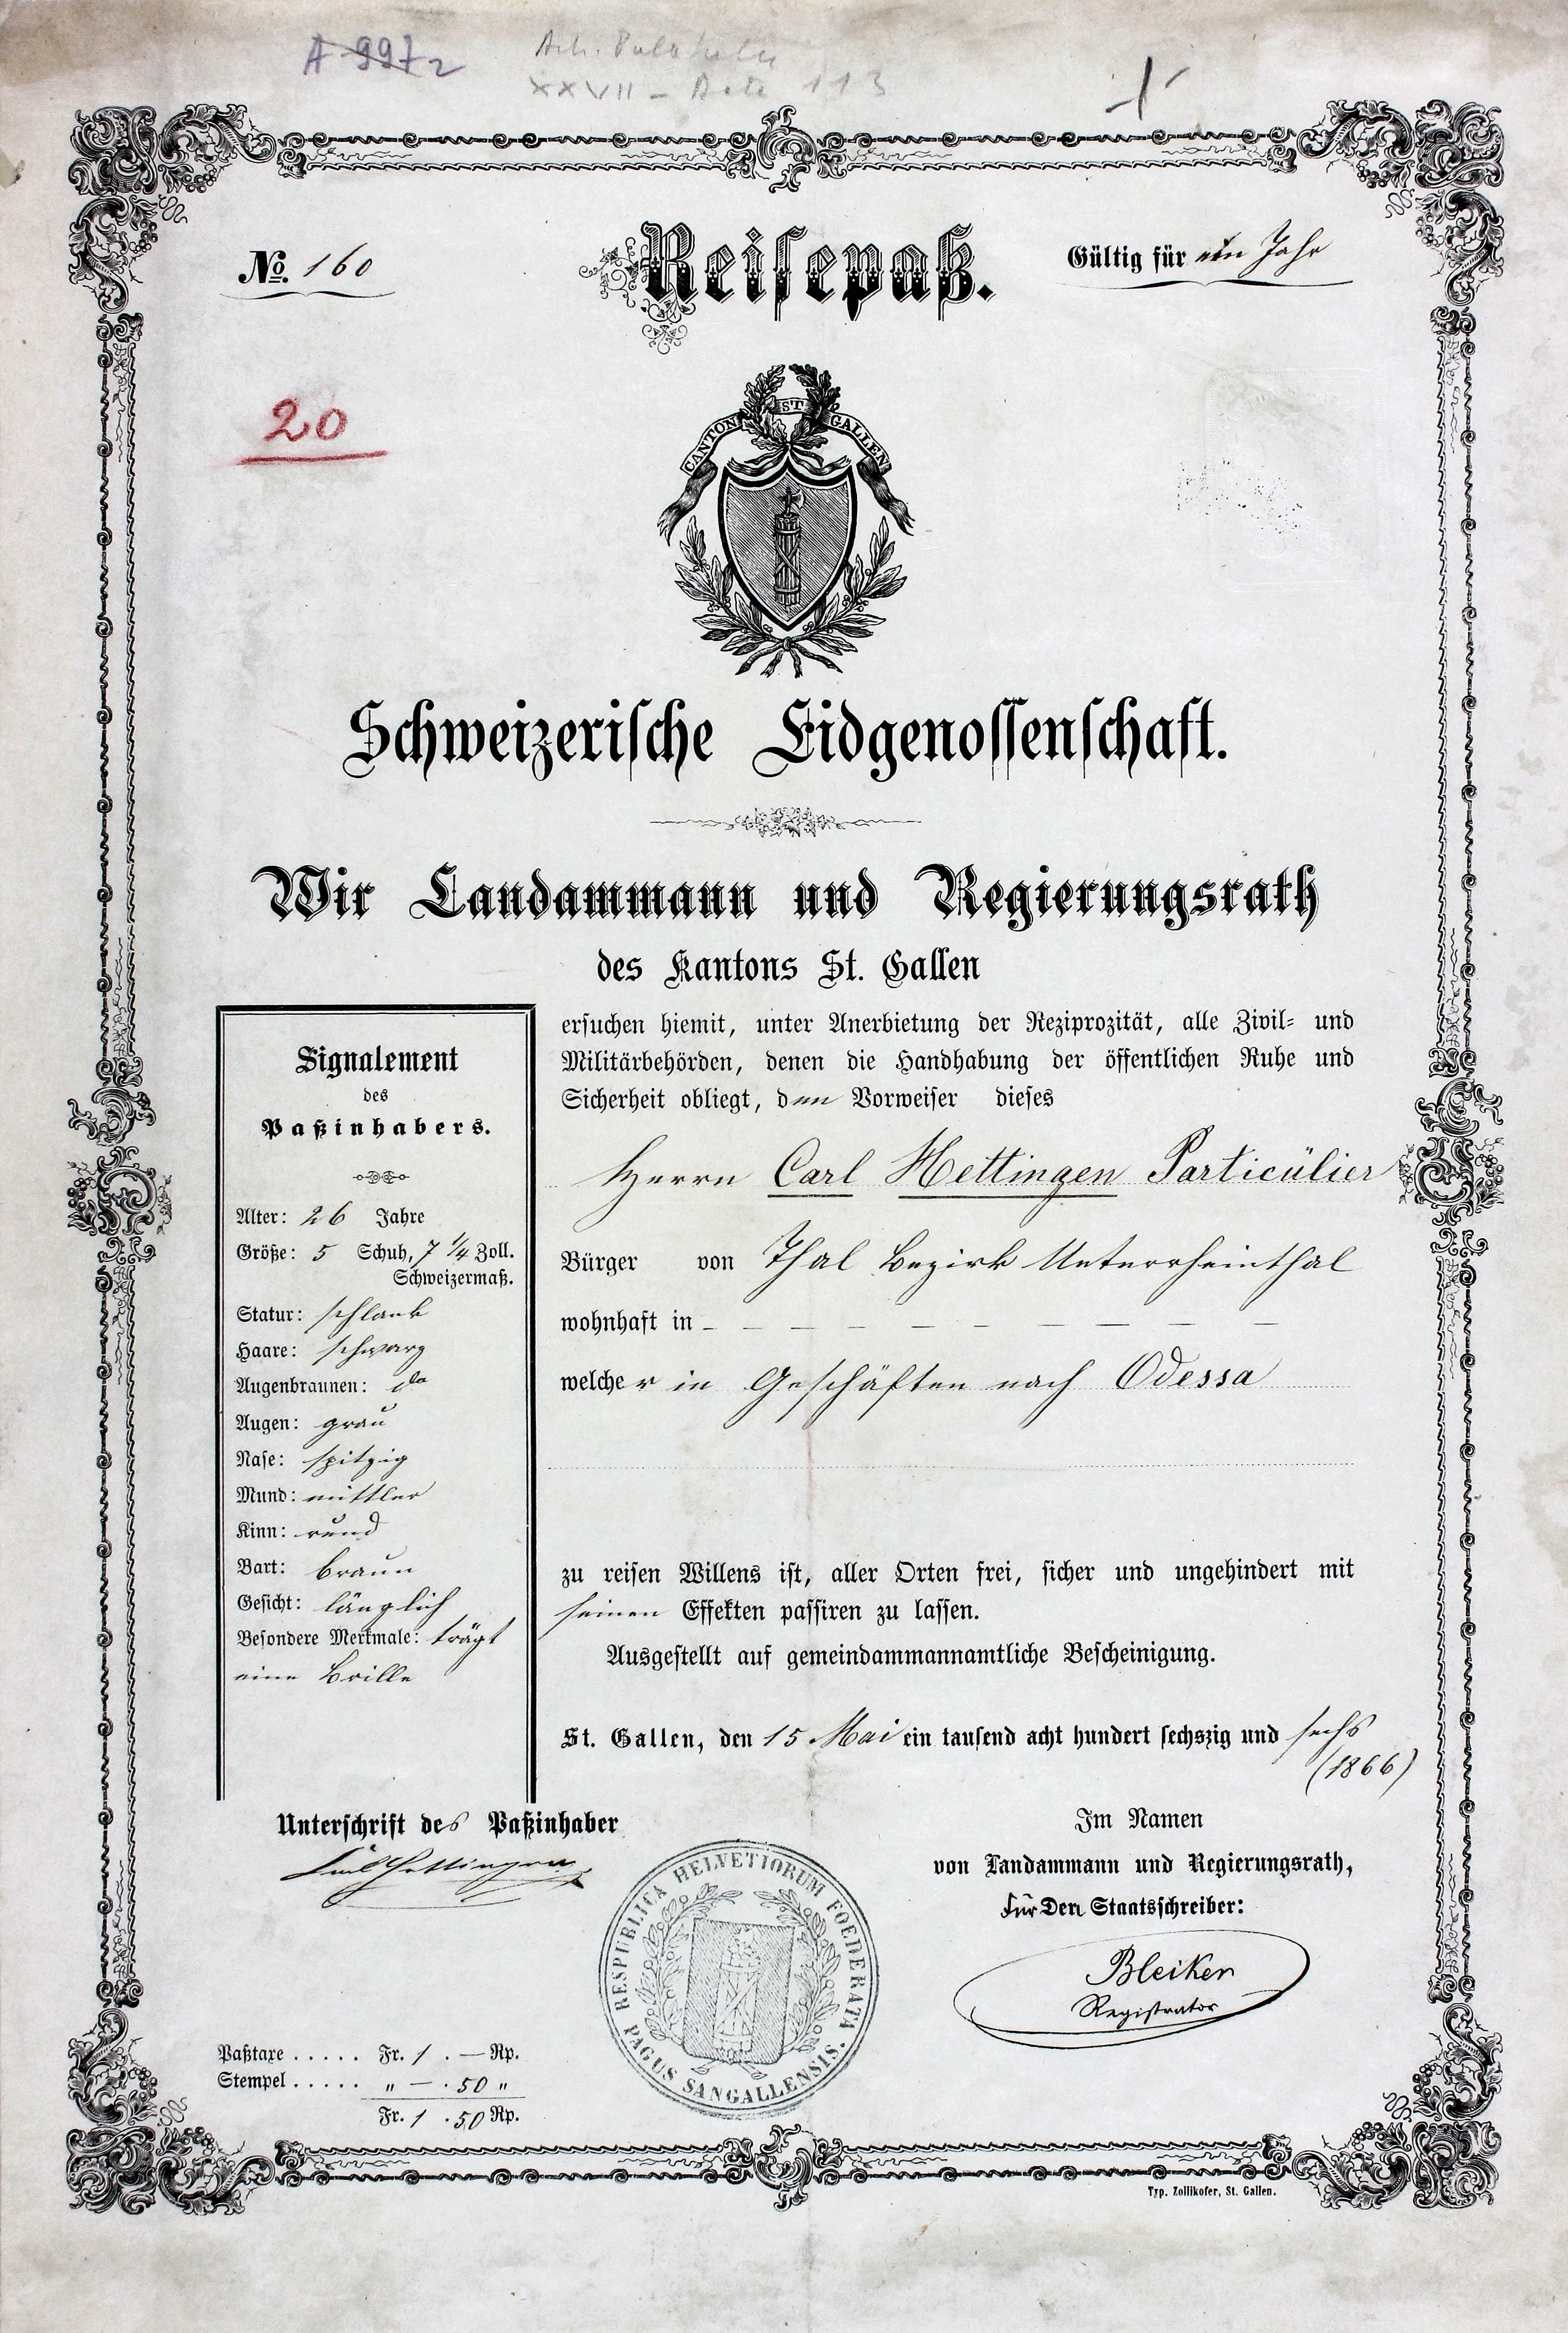 A 997 2
XXVII - Acte 113
No. 160
Reisepaß.
Gültig für ein Jahr
20
CANTON ST GALLEN
Schweizerische Eidgenossenschaft.
Wir Landammann und Regierungsrath
des Kantons St. Gallen
ersuchen hiemit, unter Anerbietung der Reziprozität, alle Zivil- und
Militärbehörden, denen die Handhabung der öffentlichen Ruhe und
Sicherheit obliegt, den Vorweiser dieses
Herrn Carl Hettingen Particülier
Bürger von Thal Bezirk Unterrheinthal
wohnhaft in – – – – – – – – – –
welcher in Geschäften nach Odessa
zu reisen Willens ist, aller Orten frei, sicher und ungehindert mit
seinen Effekten passiren zu lassen.
Ausgestellt auf gemeindammannamtliche Bescheinigung.
St. Gallen, den 15 Mai ein tausend acht hundert sechszig und sechs
(1866)
Signalement
des
Paßinhabers.
Alter: 26 Jahre
Größe: 5 Schuh, 7 1/4 Zoll.
Schweizermaß.
Statur: schlank
Haare: schwarz
Augenbraunen: do
Augen: grau
Nase: spitzig
Mund: mittler
Kinn: rund
Bart: braun
Gesicht: länglich
Besondere Merkmale: trägt
eine Brille
Unterschrift des Paßinhaber
Carl Hettingen
Im Namen
von Landammann und Regierungsrath,
Für Den Staatsschreiber:
Bleiker
Registrator
RESPUBLICA HELVETIORUM FOEDERATA.
PAGUS SANGALLENSIS.
Paßtaxe ..... Fr. 1 . — Rp.
Stempel ..... " — . 50 "
Fr. 1 . 50 Rp.
Typ. Zollikofer, St. Gallen.